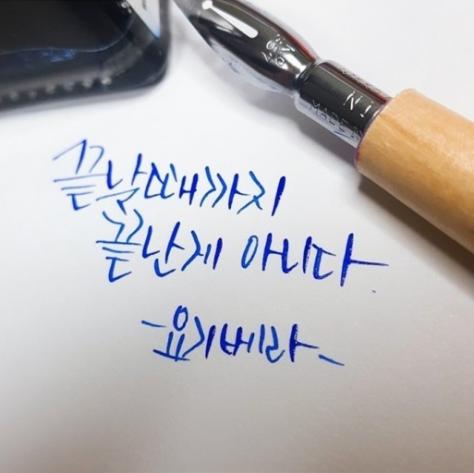 끝날때까지
끝난게 아니다.
-요기베라-